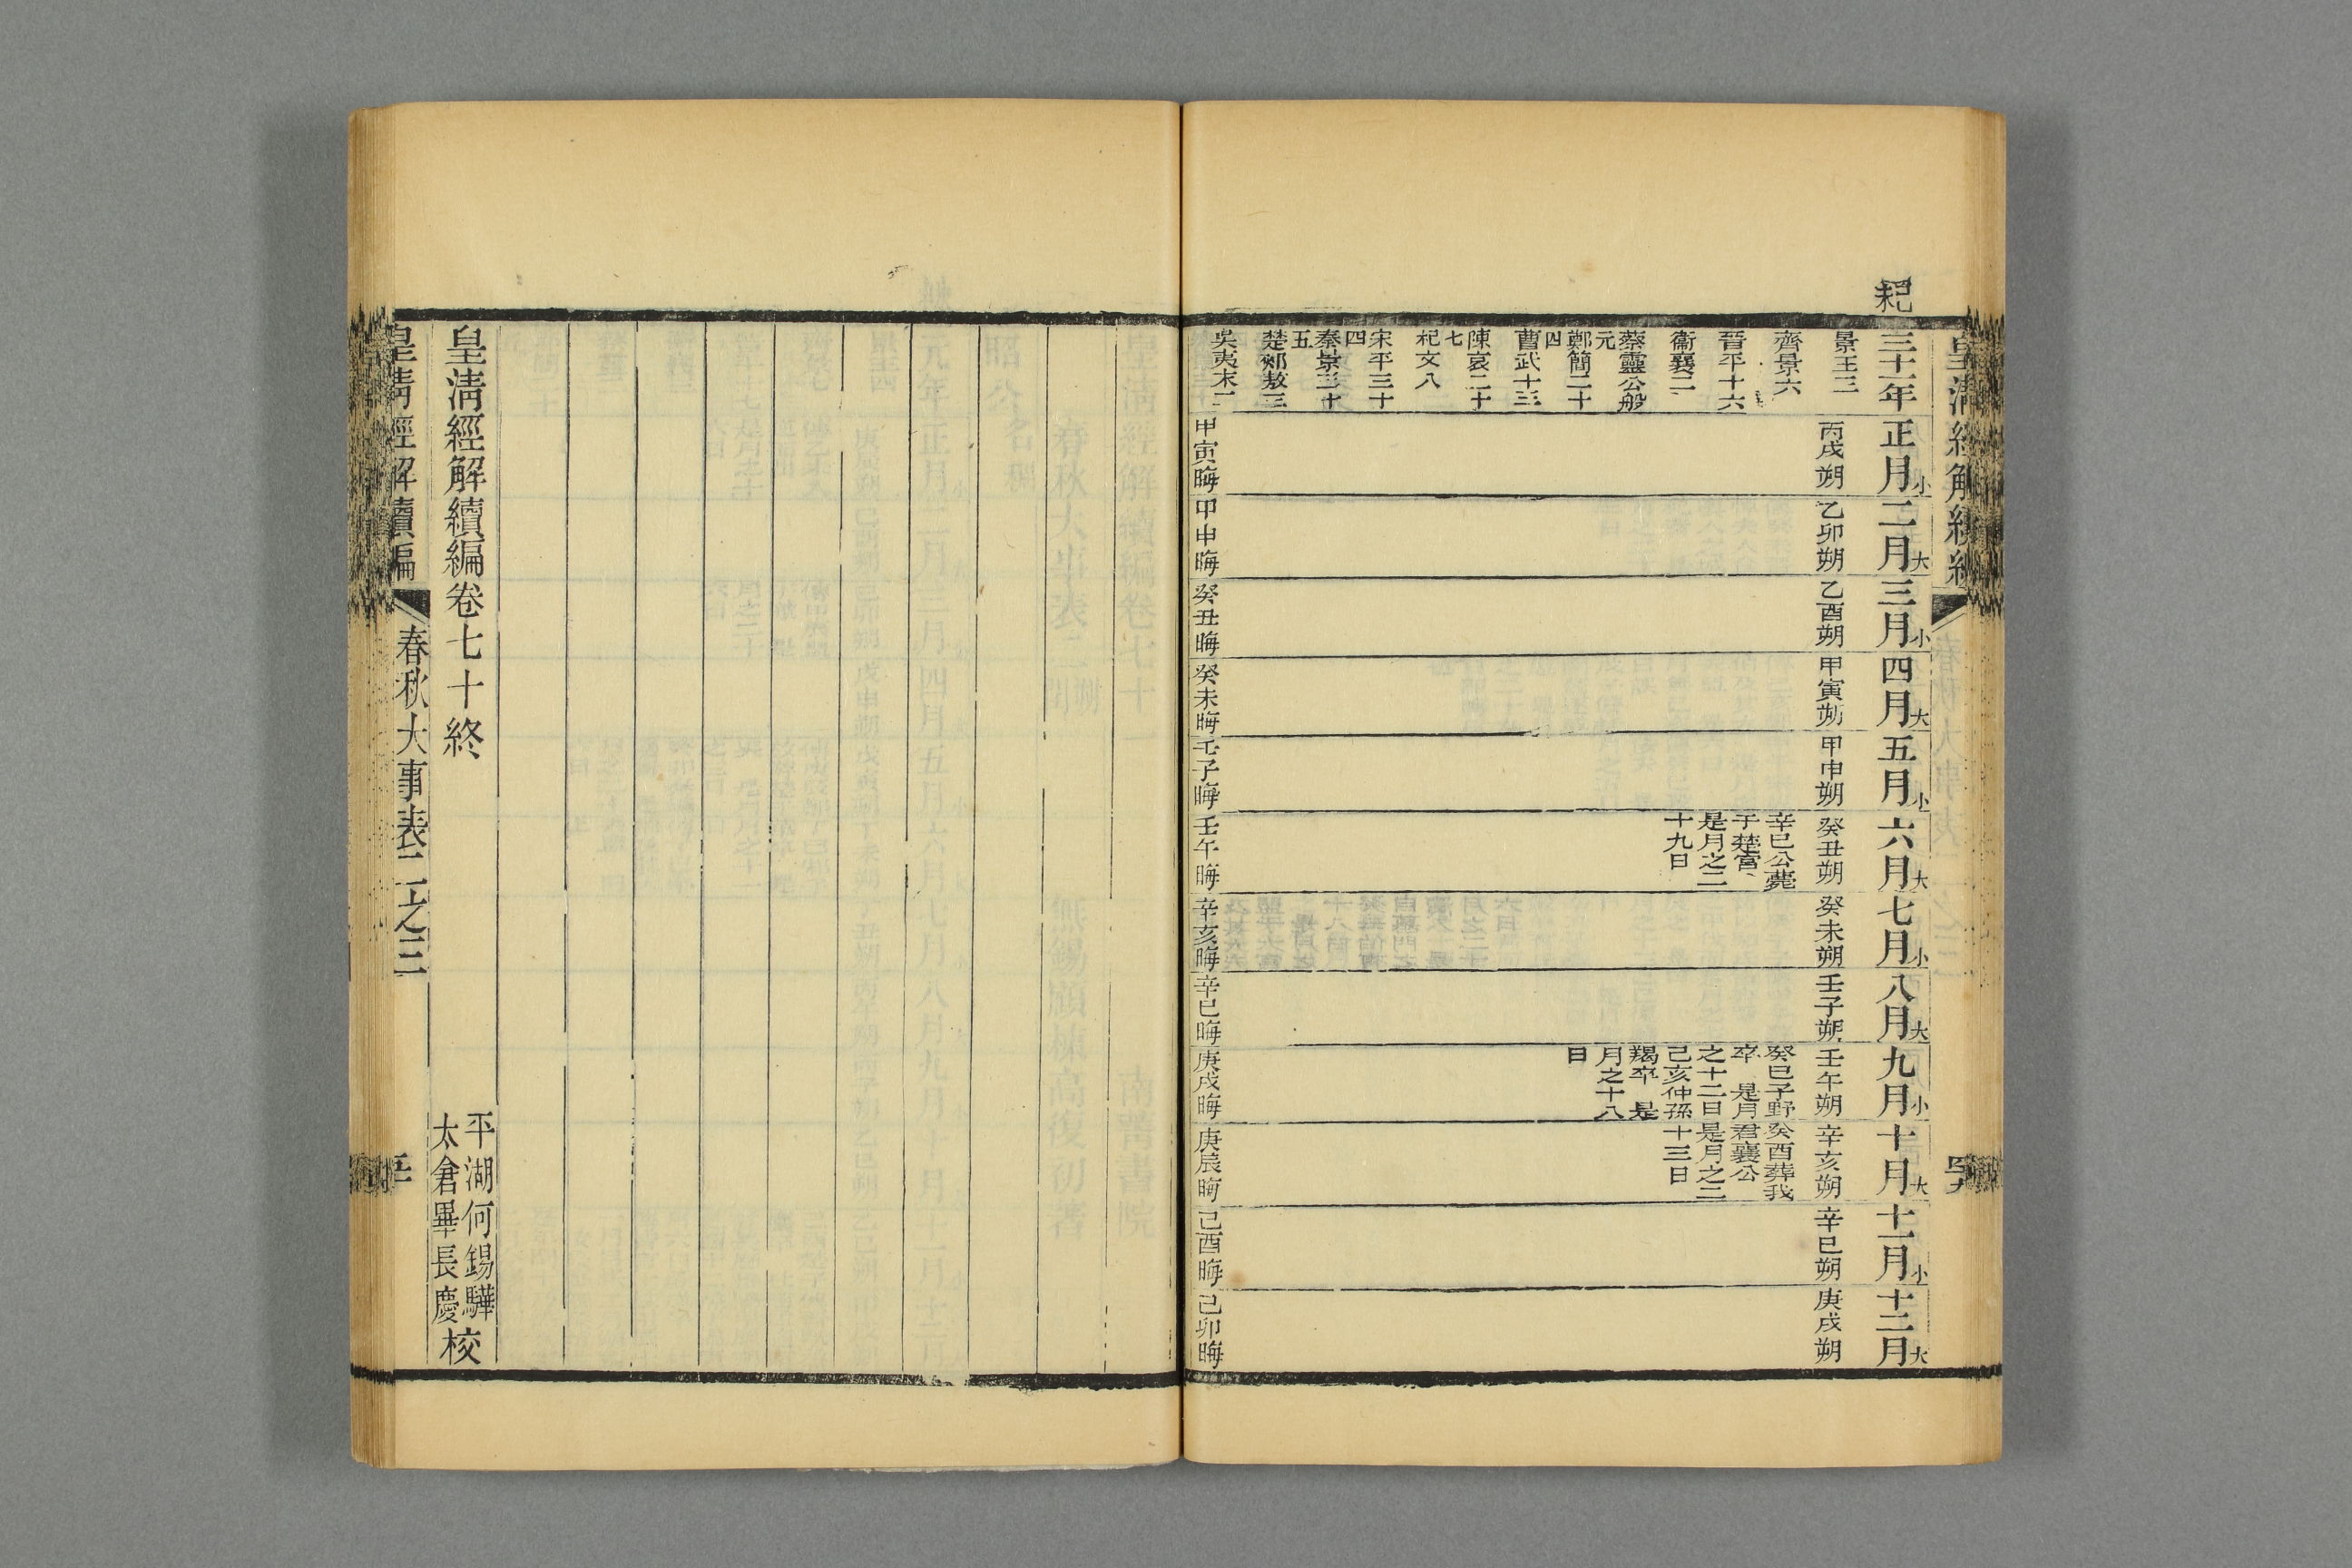 皇清經解續編
四十九
紀
三十一年
正月小
二月大
三月小
四月大
五月小
六月大
七月小
八月大
九月小
十月大
十一月小
十二月大
景王三
丙戌朔
乙卯朔
乙酉朔
甲寅朔
甲申朔
癸丑朔
癸未朔
壬子朔
壬午朔
辛亥朔
辛巳朔
庚戌朔
齊景六
晉平十六
衞襄二
蔡靈公般
元
鄭簡二十
四
曹武十三
陳哀二十
七
杞文八
宋平三十
四
秦景三十
五
楚郟敖三
吳夷末二
辛巳公薨
于楚宮
是月之二
十九日
癸巳子野
卒 是月
之十二日
己亥仲孫
羯卒 是
月之十八
日
癸酉葬我
君襄公
是月之二
十三日
甲寅晦
甲申晦
癸丑晦
癸未晦
壬子晦
壬午晦
辛亥晦
辛巳晦
庚戌晦
庚辰晦
己酉晦
己卯晦
皇清經解續編卷七十終
平湖何錫驊
太倉畢長慶
校
皇清經解續編
春秋大事表二之三